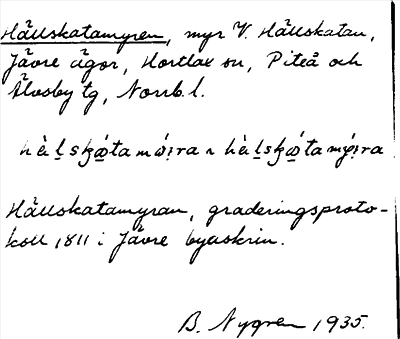 Hällskatamyren, myr V. Hällskatan,
Jävre ägor, Hortlax sn, Piteå och
Älvsby tg, Norrb. l.
Hällskatamyran, graderingsproto-
koll 1811 i Jävre byaskrin.
B. Nygren 1935.